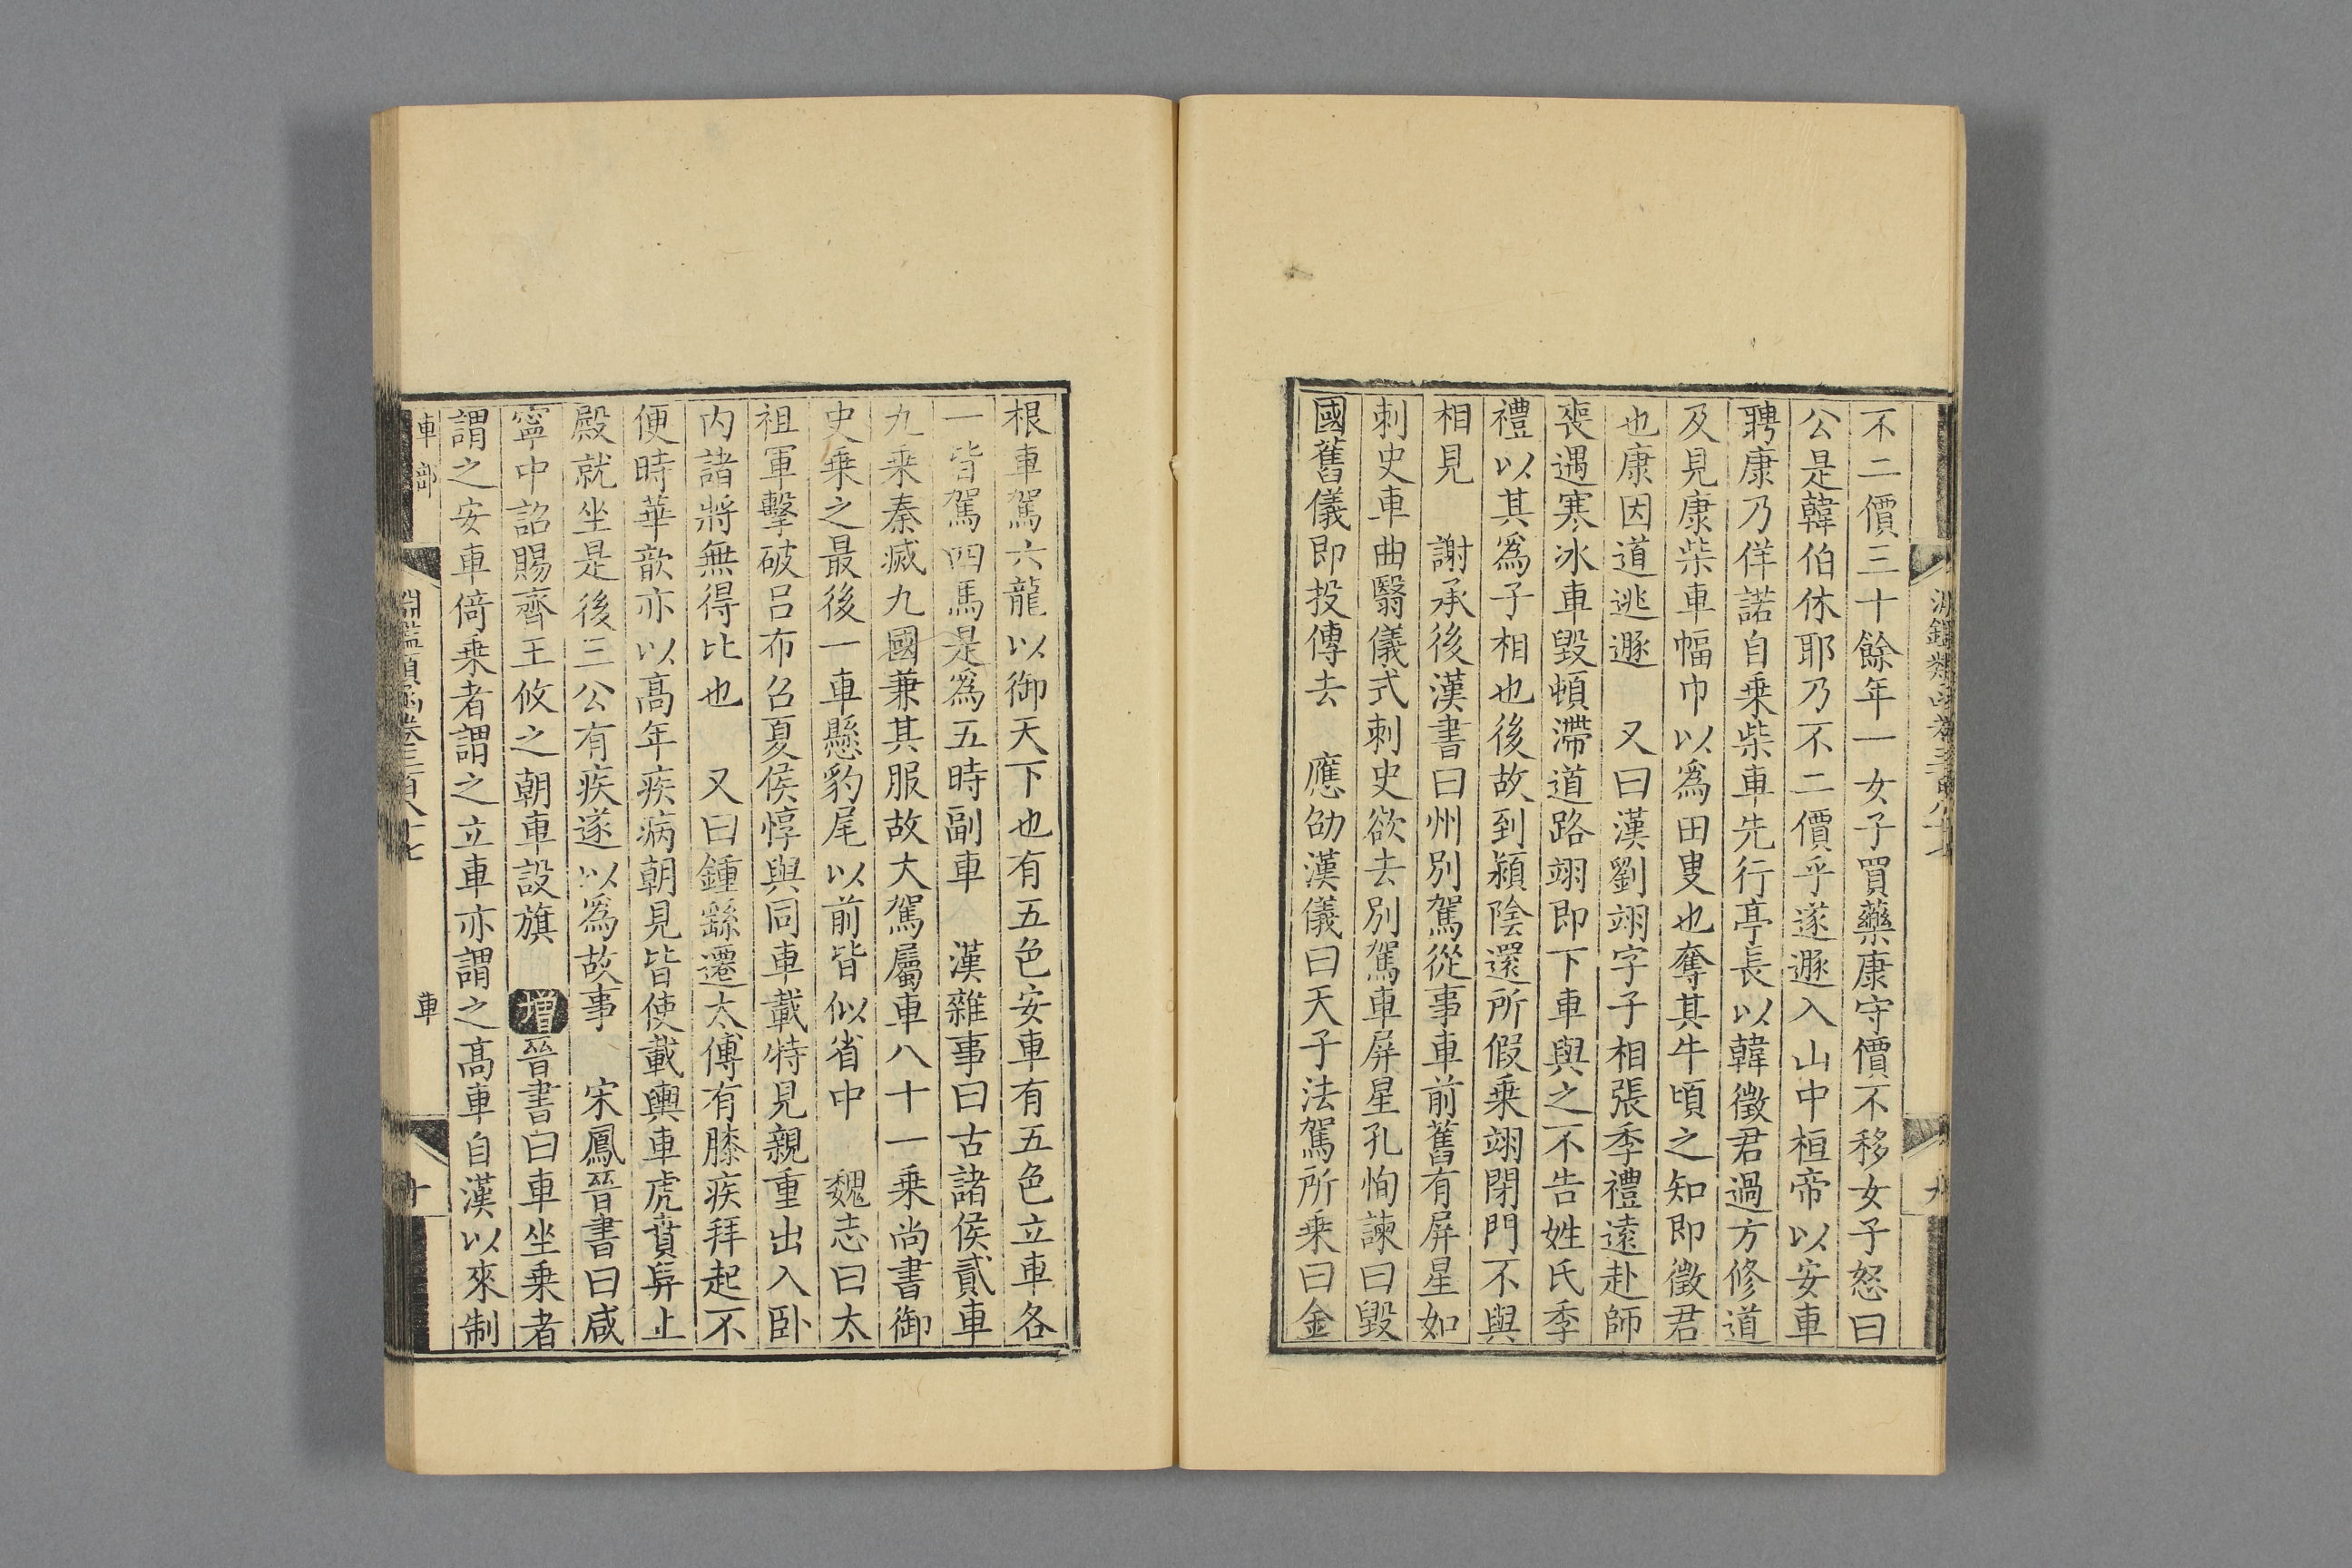 不二價三十餘年一女子買藥康守價不移女子怒曰
公是韓伯休耶乃不二價乎遂遯入山中桓帝以安車
聘康乃佯諾自乗柴車先行亭長以韓徵君過方修道
及見康柴車幅巾以為田叟也奪其牛頃之知即徵君
也康因道逃遯　又曰漢劉翊字子相張季禮遠赴師
喪遇寒冰車毀頓滯道路翊即下車與之不告姓氏季
禮以其為子相也後故到潁陰還所假乗翊閉門不與
相見　謝承後漢書曰州別駕從事車前舊有屏星如
刺史車曲翳儀式刺史欲去別駕車屏星孔恂諫曰毀
國舊儀即投傳去　應劭漢儀曰天子法駕所乗曰金
根車駕六龍以御天下也有五色安車有五色立車各
一皆駕四馬是為五時副車　漢雜事曰古諸侯貳車
九乗秦滅九國兼其服故大駕屬車八十一乗尚書御
史乗之最後一車懸豹尾以前皆似省中　魏志曰太
祖軍擊破呂布召夏侯惇與同車載特見親重出入卧
内諸將無得比也　又曰鍾繇遷太傅有膝疾拜起不
便時華歆亦以高年疾病朝見皆使載輿車虎賁舁上
殿就坐是後三公有疾遂以為故事　宋鳳晉書曰咸
寧中詔賜齊王攸之朝車設旗　增晉書曰車坐乗者
謂之安車倚乗者謂之立車亦謂之高車自漢以來制
車部
淵鑑類函卷三百八十七
車
十